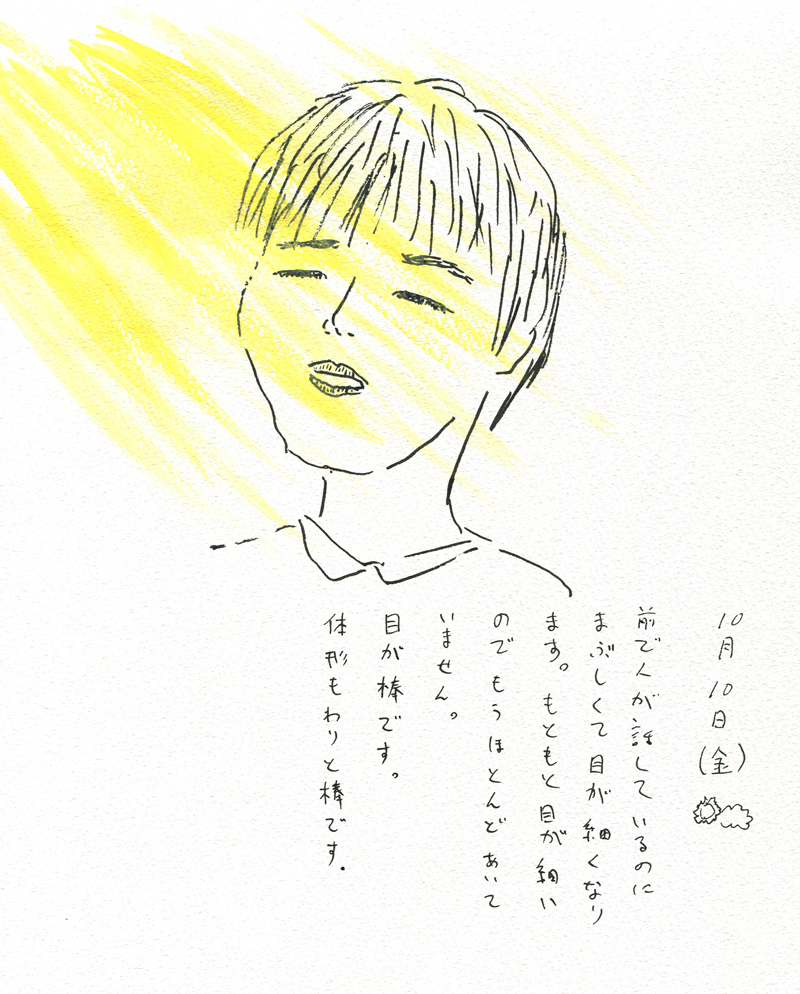 10月10日(金)
前で人が話しているのに
まぶしくて目が細くなり
ます。もともと目が細い
のでもうほとんどあいて
いません。
目が棒です。
体形もわりと棒です.